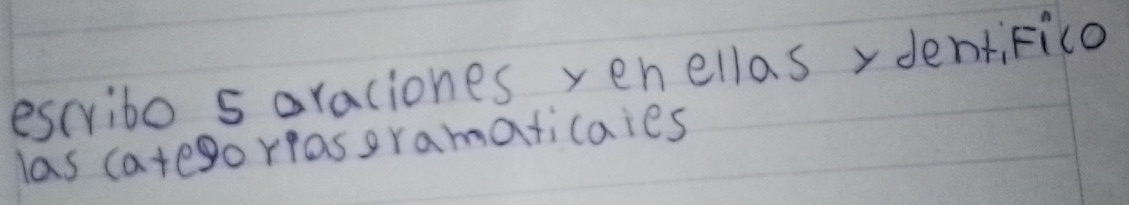 escribo 5 oraciones y en ellas ydentifico
las categorias gramaticales